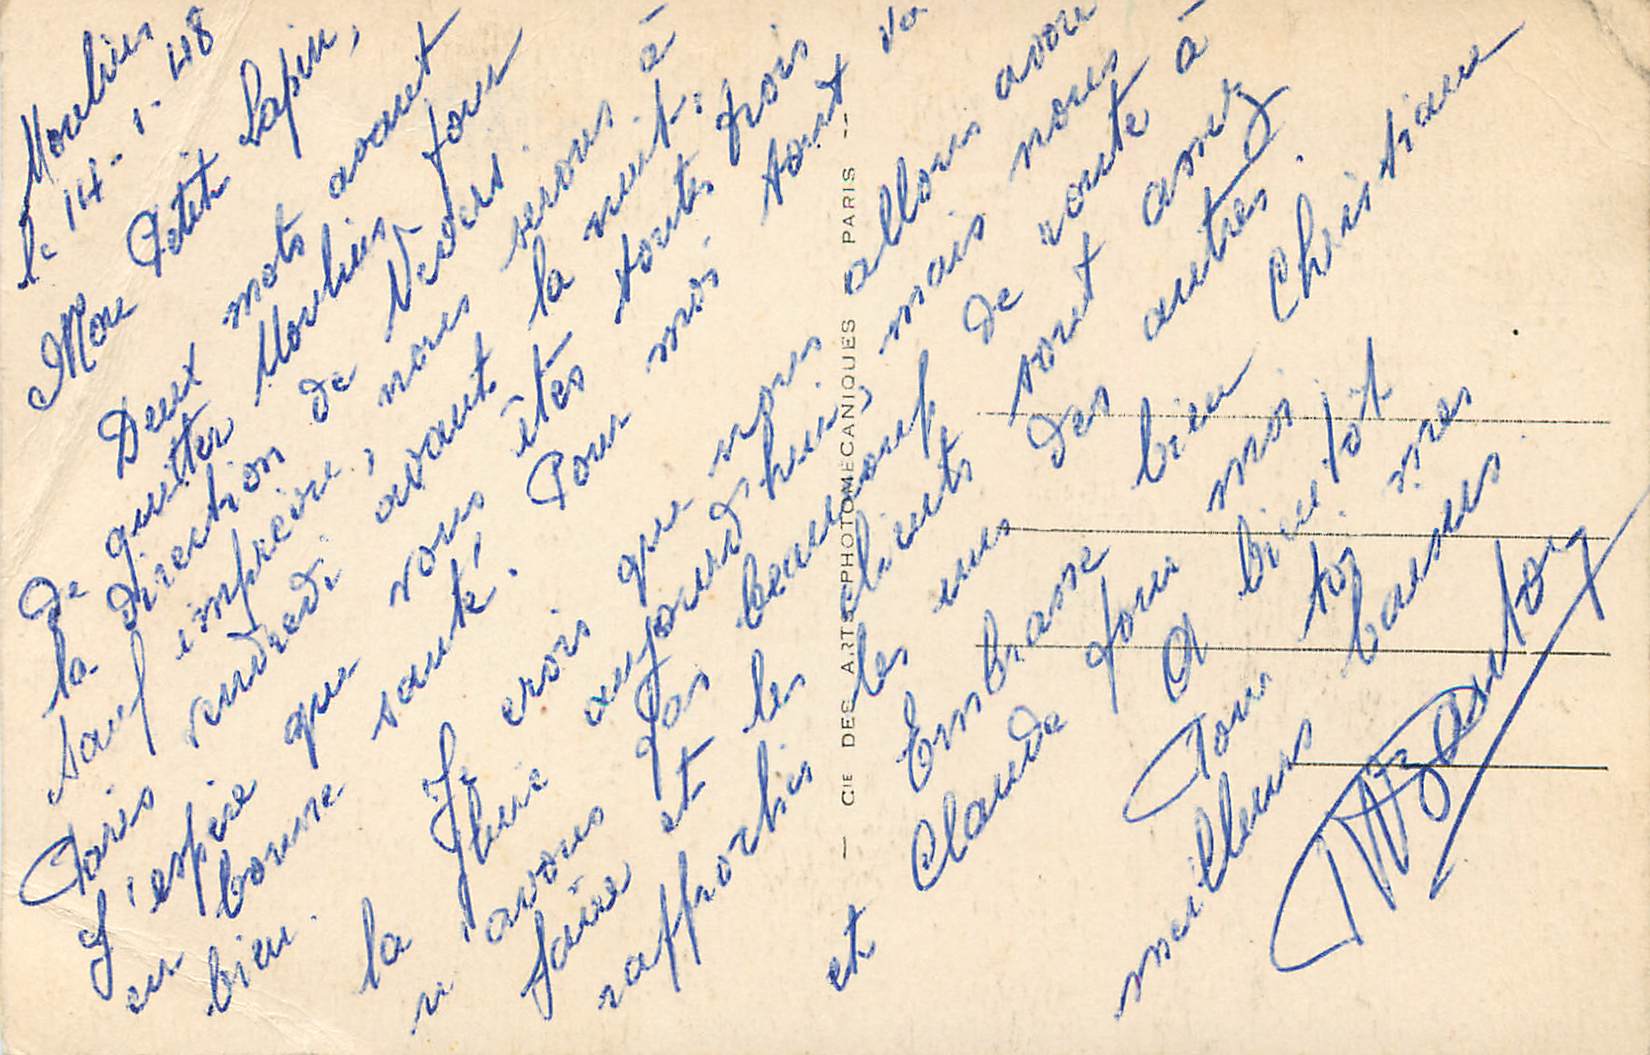 Moulins
le 14-1-48
Mon Petit Lapin,
Deux mots avant
de quitter Moulins pour
la direction de Nevers.
Sauf imprévu, nous serons à
Paris vendredi avant la nuit.
J'espère que vous êtes toutes trois
en bonne santé. Pour moi tout va
bien.
Je crois que nous allons avoir
la pluie aujourd'hui, mais nous
n'avons pas beaucoup de route à
faire et les clients sont assez
rapprochés les uns des autres.
Embrasse bien Christiane
et Claude pour moi.
A bientôt
Pour toi mes
meilleurs baisers
— Cie DES ARTS PHOTOMECANIQUES PARIS —